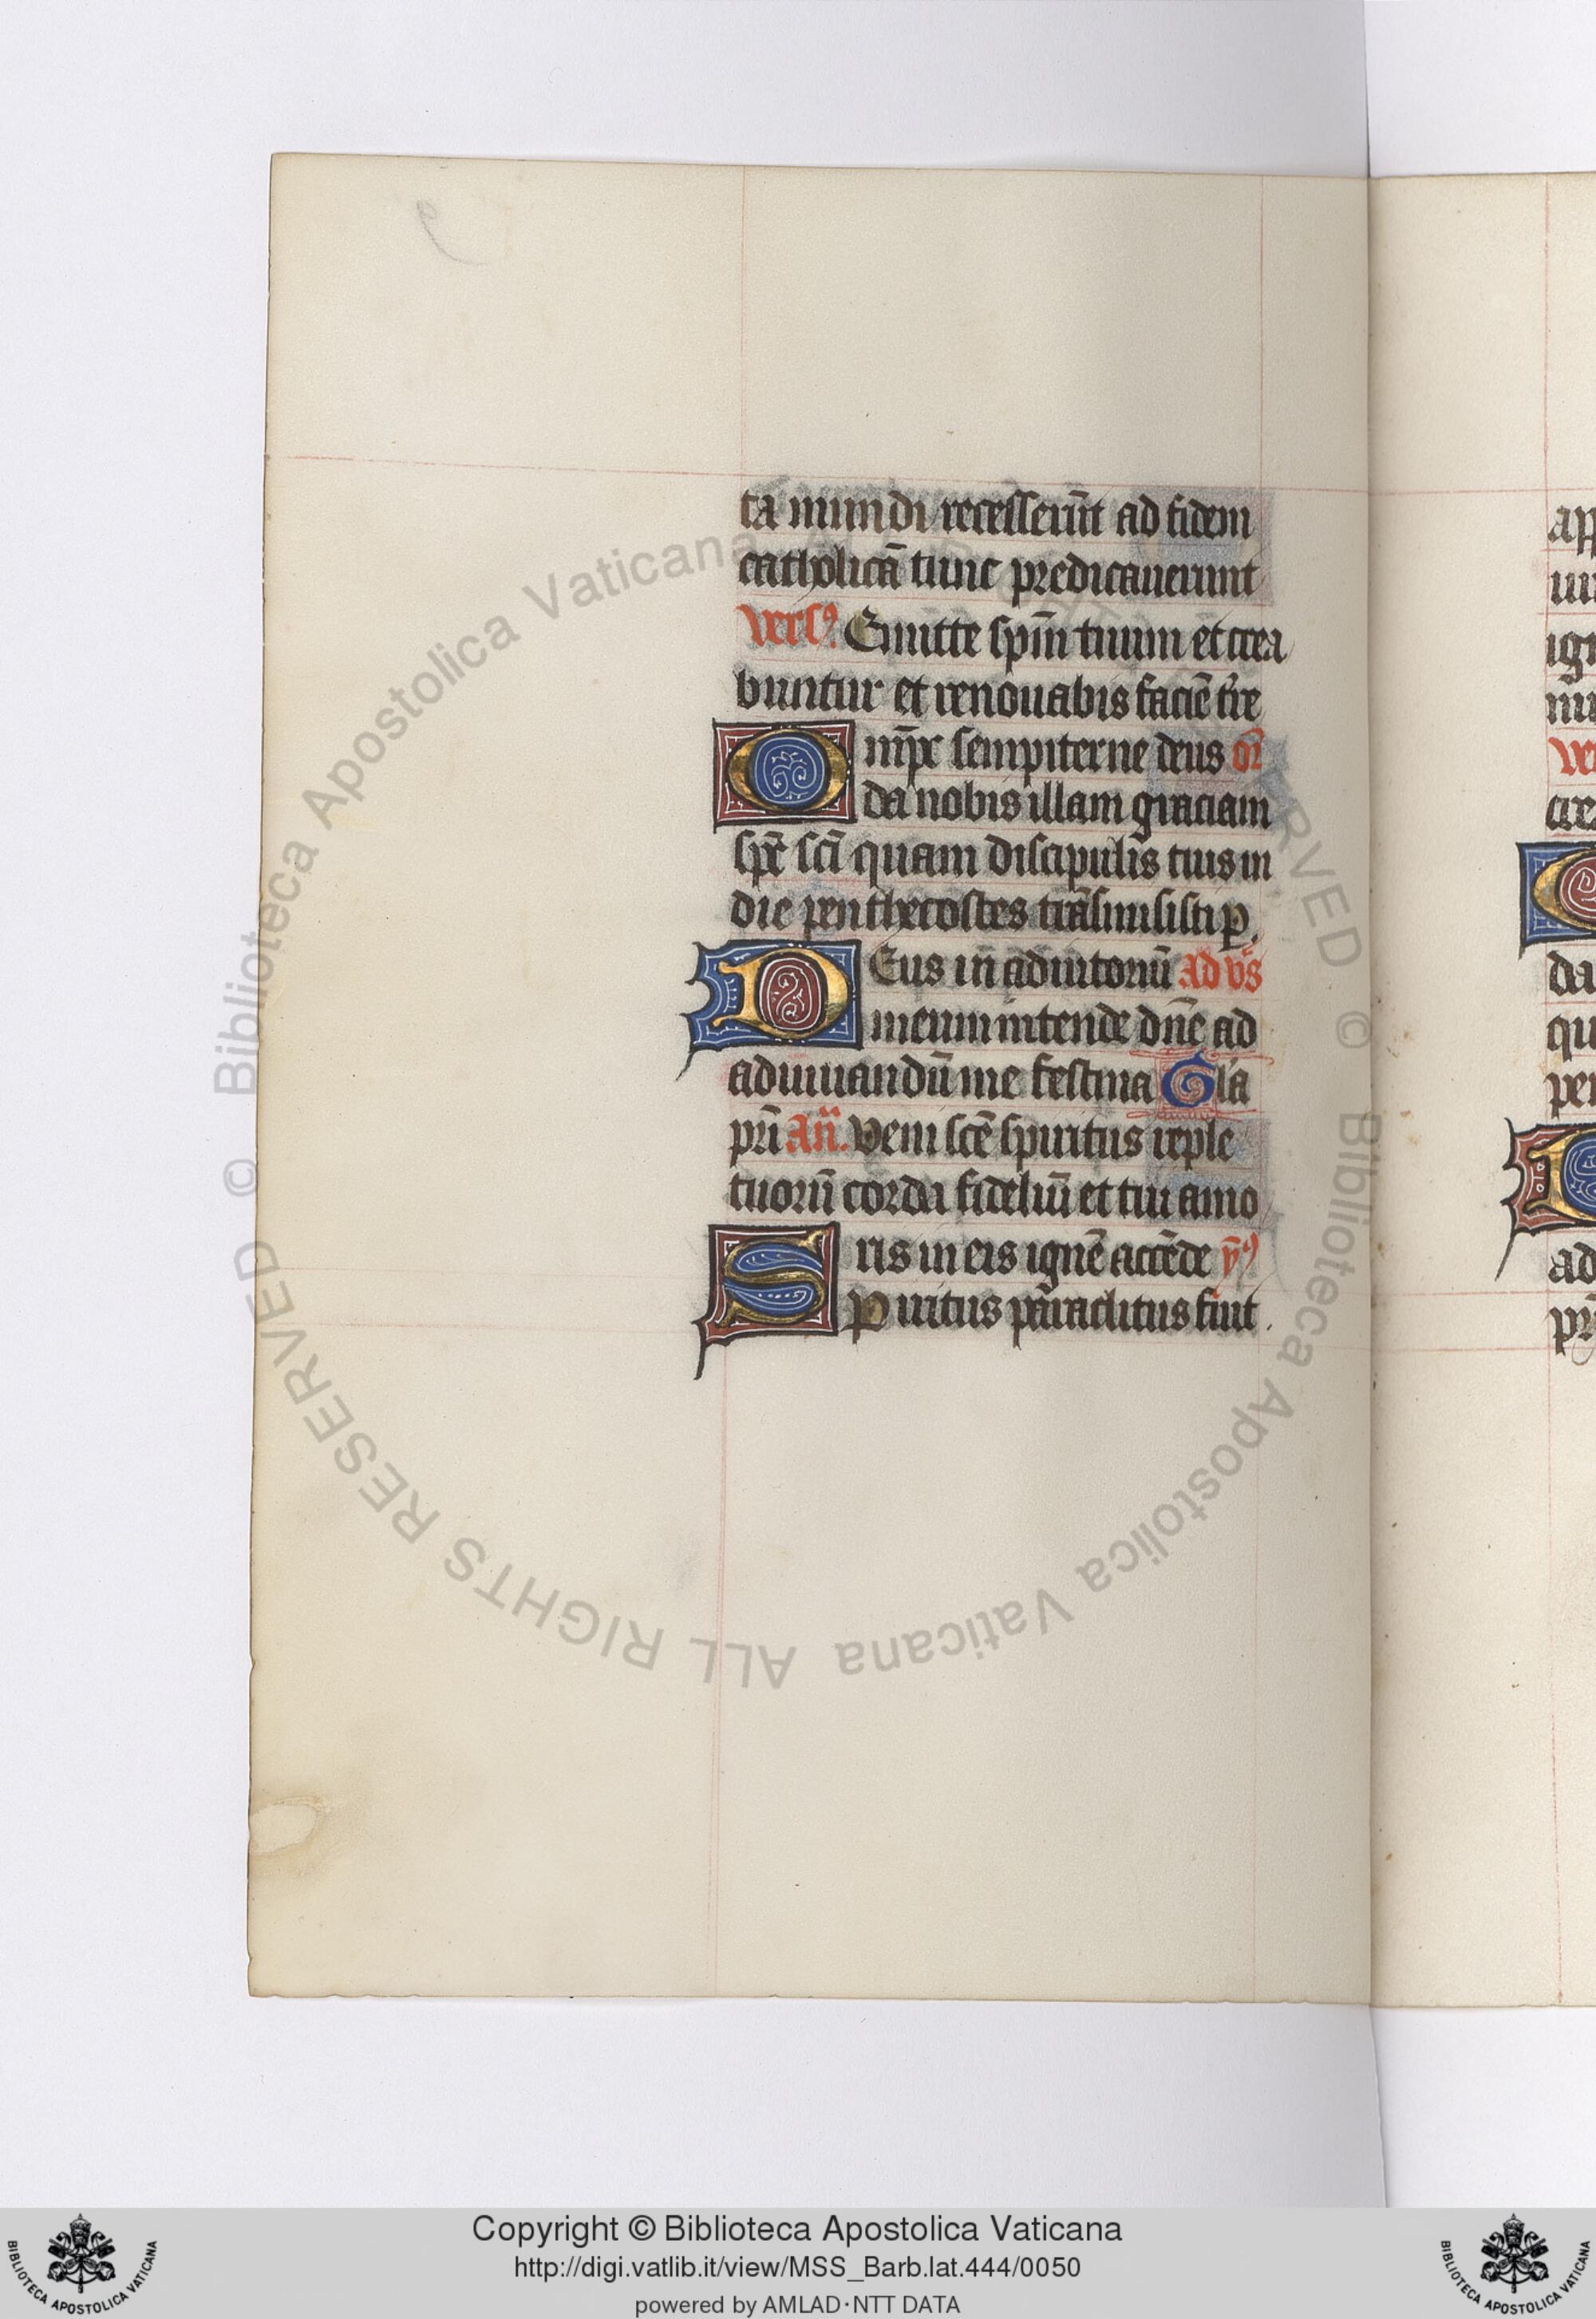 ta mundi recesserūt ad fidem
catholicā tunc predicauerunt
versꝰ. Emitte spm̄ tuum et crea
buntur et renouabis faciē tr̄re
Omp̄s sempiterne deus or̄
da nobis illam graciam
spc̄ sc̄i quam discipulis tuis in
die penthecostes trāsmisisti p.
DEus in adiutoriū ad vs̄
meum intende dn̄e ad
adiuuandū me festina Gla
pr̄i An̄. Veni sc̄e spiritus reple
tuorū corda fideliū et tui amo
ris in eis ignē accēde ȳꝰ
SPiritus paraclitus fiut.
ap
ui
ig
ni
ve
cre
da
qu
pen
ad
pr̄
© Biblioteca Apostolica Vaticana ALL RIGHTS RESERVED © Biblioteca Apostolica Vaticana ALL RIGHTS RESERVED
Copyright © Biblioteca Apostolica Vaticana
http://digi.vatlib.it/view/MSS_Barb.lat.444/0050
powered by AMLAD·NTT DATA
BIBLIOTECA APOSTOLICA VATICANA
BIBLIOTECA APOSTOLICA VATICANA